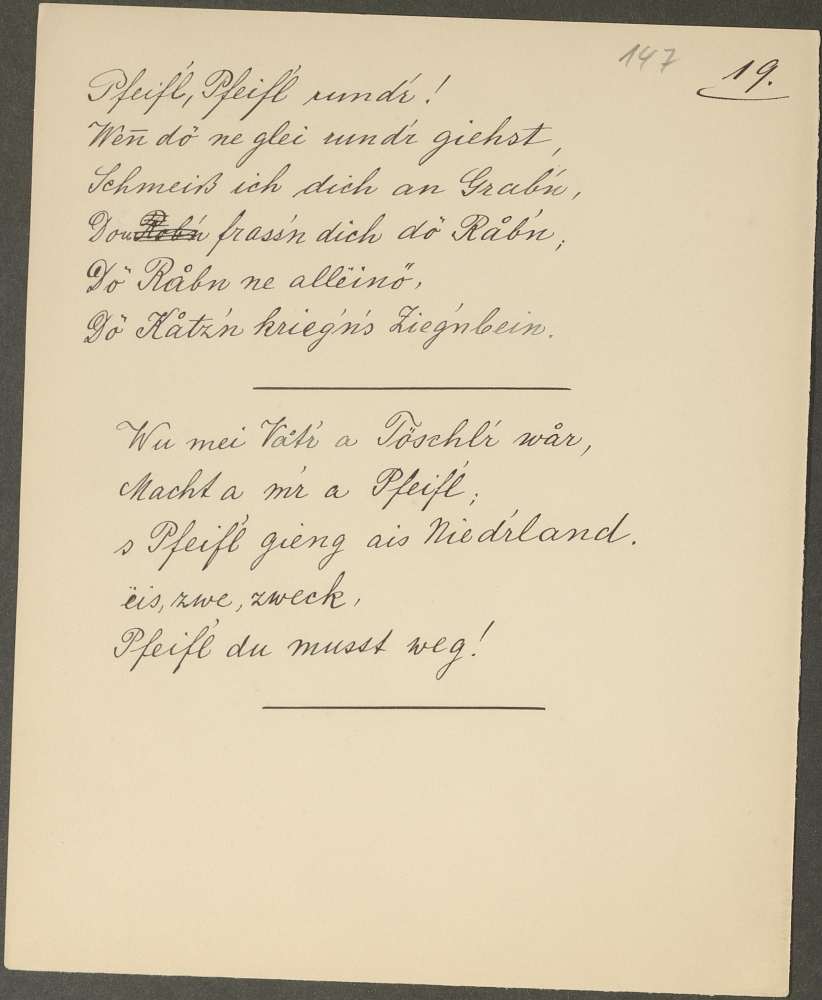 147
19.
Pfeif'l, Pfeif'l rund'r!
Weñ dö ne glei rund'r giehst,
Schmeiß ich dich an Grab'n,
Dou frass'n dich dö Råb'n;
Dö Råbn ne allëinö,
Dö Kåtz'n krieg'n's Zieg'nbein.
Wu mei Våt'r a Töschl'r wår,
Macht a m'r a Pfeif'l;
s Pfeif'l gieng ais Nied'rland.
ëis, zwe, zweck,
Pfeif'l du musst weg!